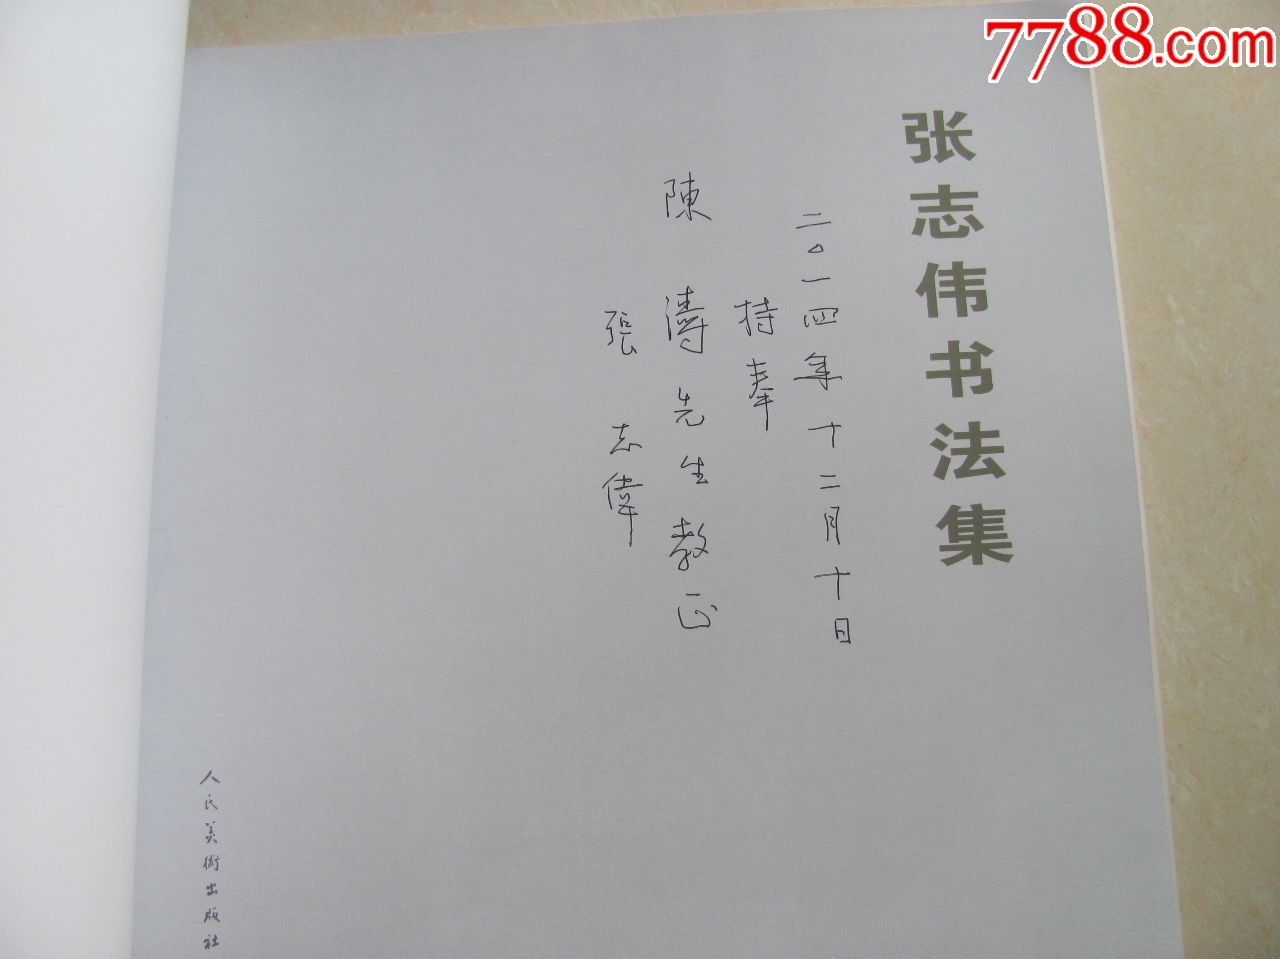 7788.com
张志伟书法集
二〇一四年十二月十日
持奉
陳濤先生教正
張志偉
人民美術出版社